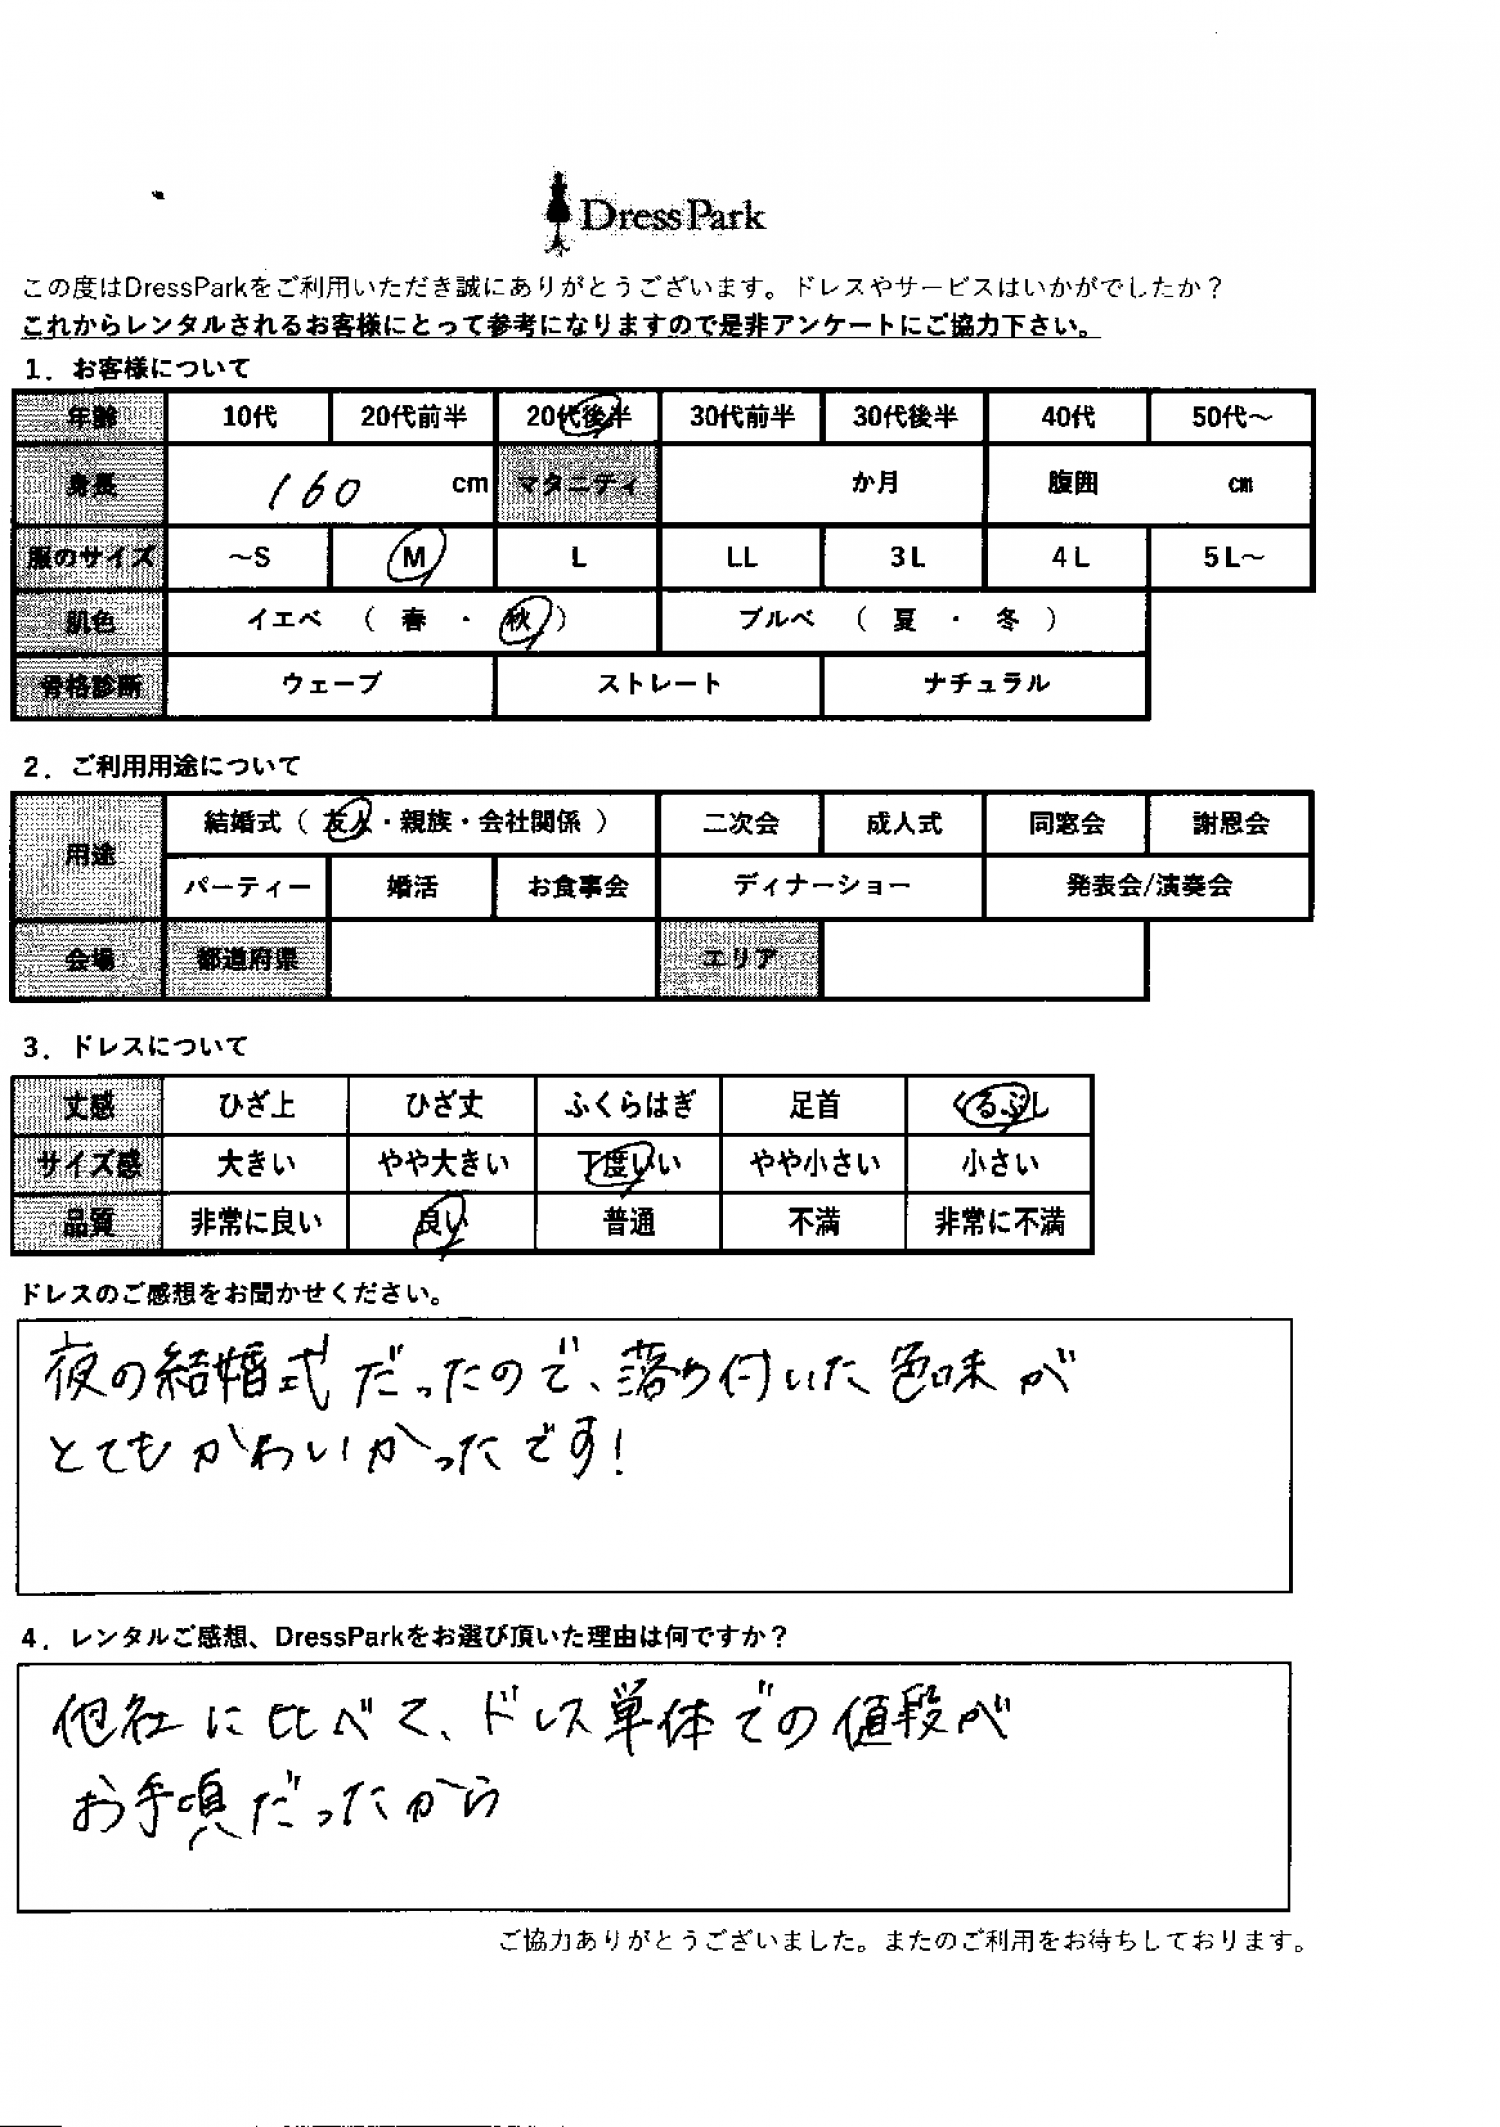 DressPark
この度はDressParkをご利用いただき誠にありがとうございます。ドレスやサービスはいかがでしたか？
これからレンタルされるお客様にとって参考になりますので是非アンケートにご協力下さい。
1．お客様について
年齢 10代 20代前半 20代後半 30代前半 30代後半 40代 50代～
身長 160 cm マタニティ か月 腹囲 cm
服のサイズ ～S M L LL 3L 4L 5L～
肌色 イエベ （ 春 ・ 秋 ） ブルベ （ 夏 ・ 冬 ）
骨格診断 ウェーブ ストレート ナチュラル
2．ご利用用途について
用途 結婚式（ 友人・親族・会社関係 ） 二次会 成人式 同窓会 謝恩会
パーティー 婚活 お食事会 ディナーショー 発表会/演奏会
会場 都道府県 エリア
3．ドレスについて
丈感 ひざ上 ひざ丈 ふくらはぎ 足首 くるぶし
サイズ感 大きい やや大きい 丁度いい やや小さい 小さい
品質 非常に良い 良い 普通 不満 非常に不満
ドレスのご感想をお聞かせください。
夜の結婚式だったので、落ち付いた色味が
とてもかわいかったです!
4．レンタルご感想、DressParkをお選び頂いた理由は何ですか？
他社に比べて、ドレス単体での値段が
お手頃だったから
ご協力ありがとうございました。またのご利用をお待ちしております。